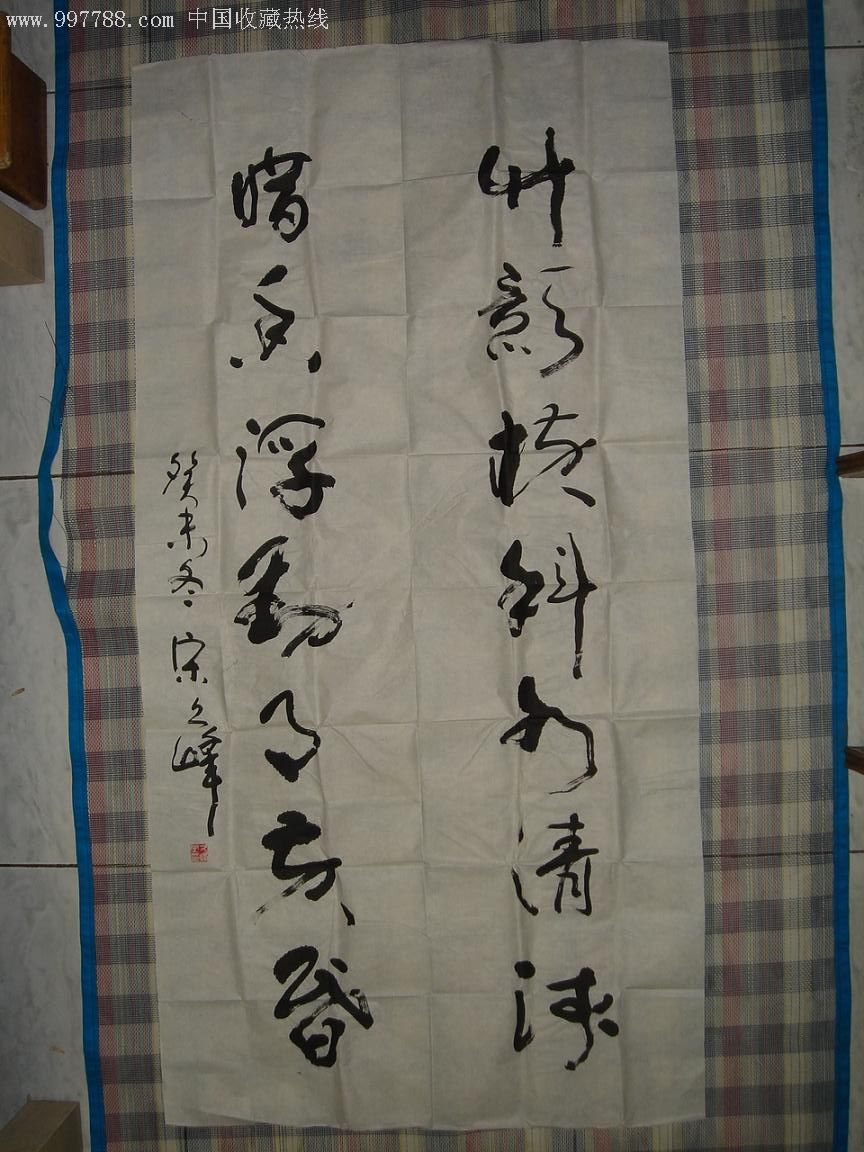 www.997788.com 中国收藏热线
竹影横斜水清浅
暗香浮動月黄昏
癸未冬 宋 峰